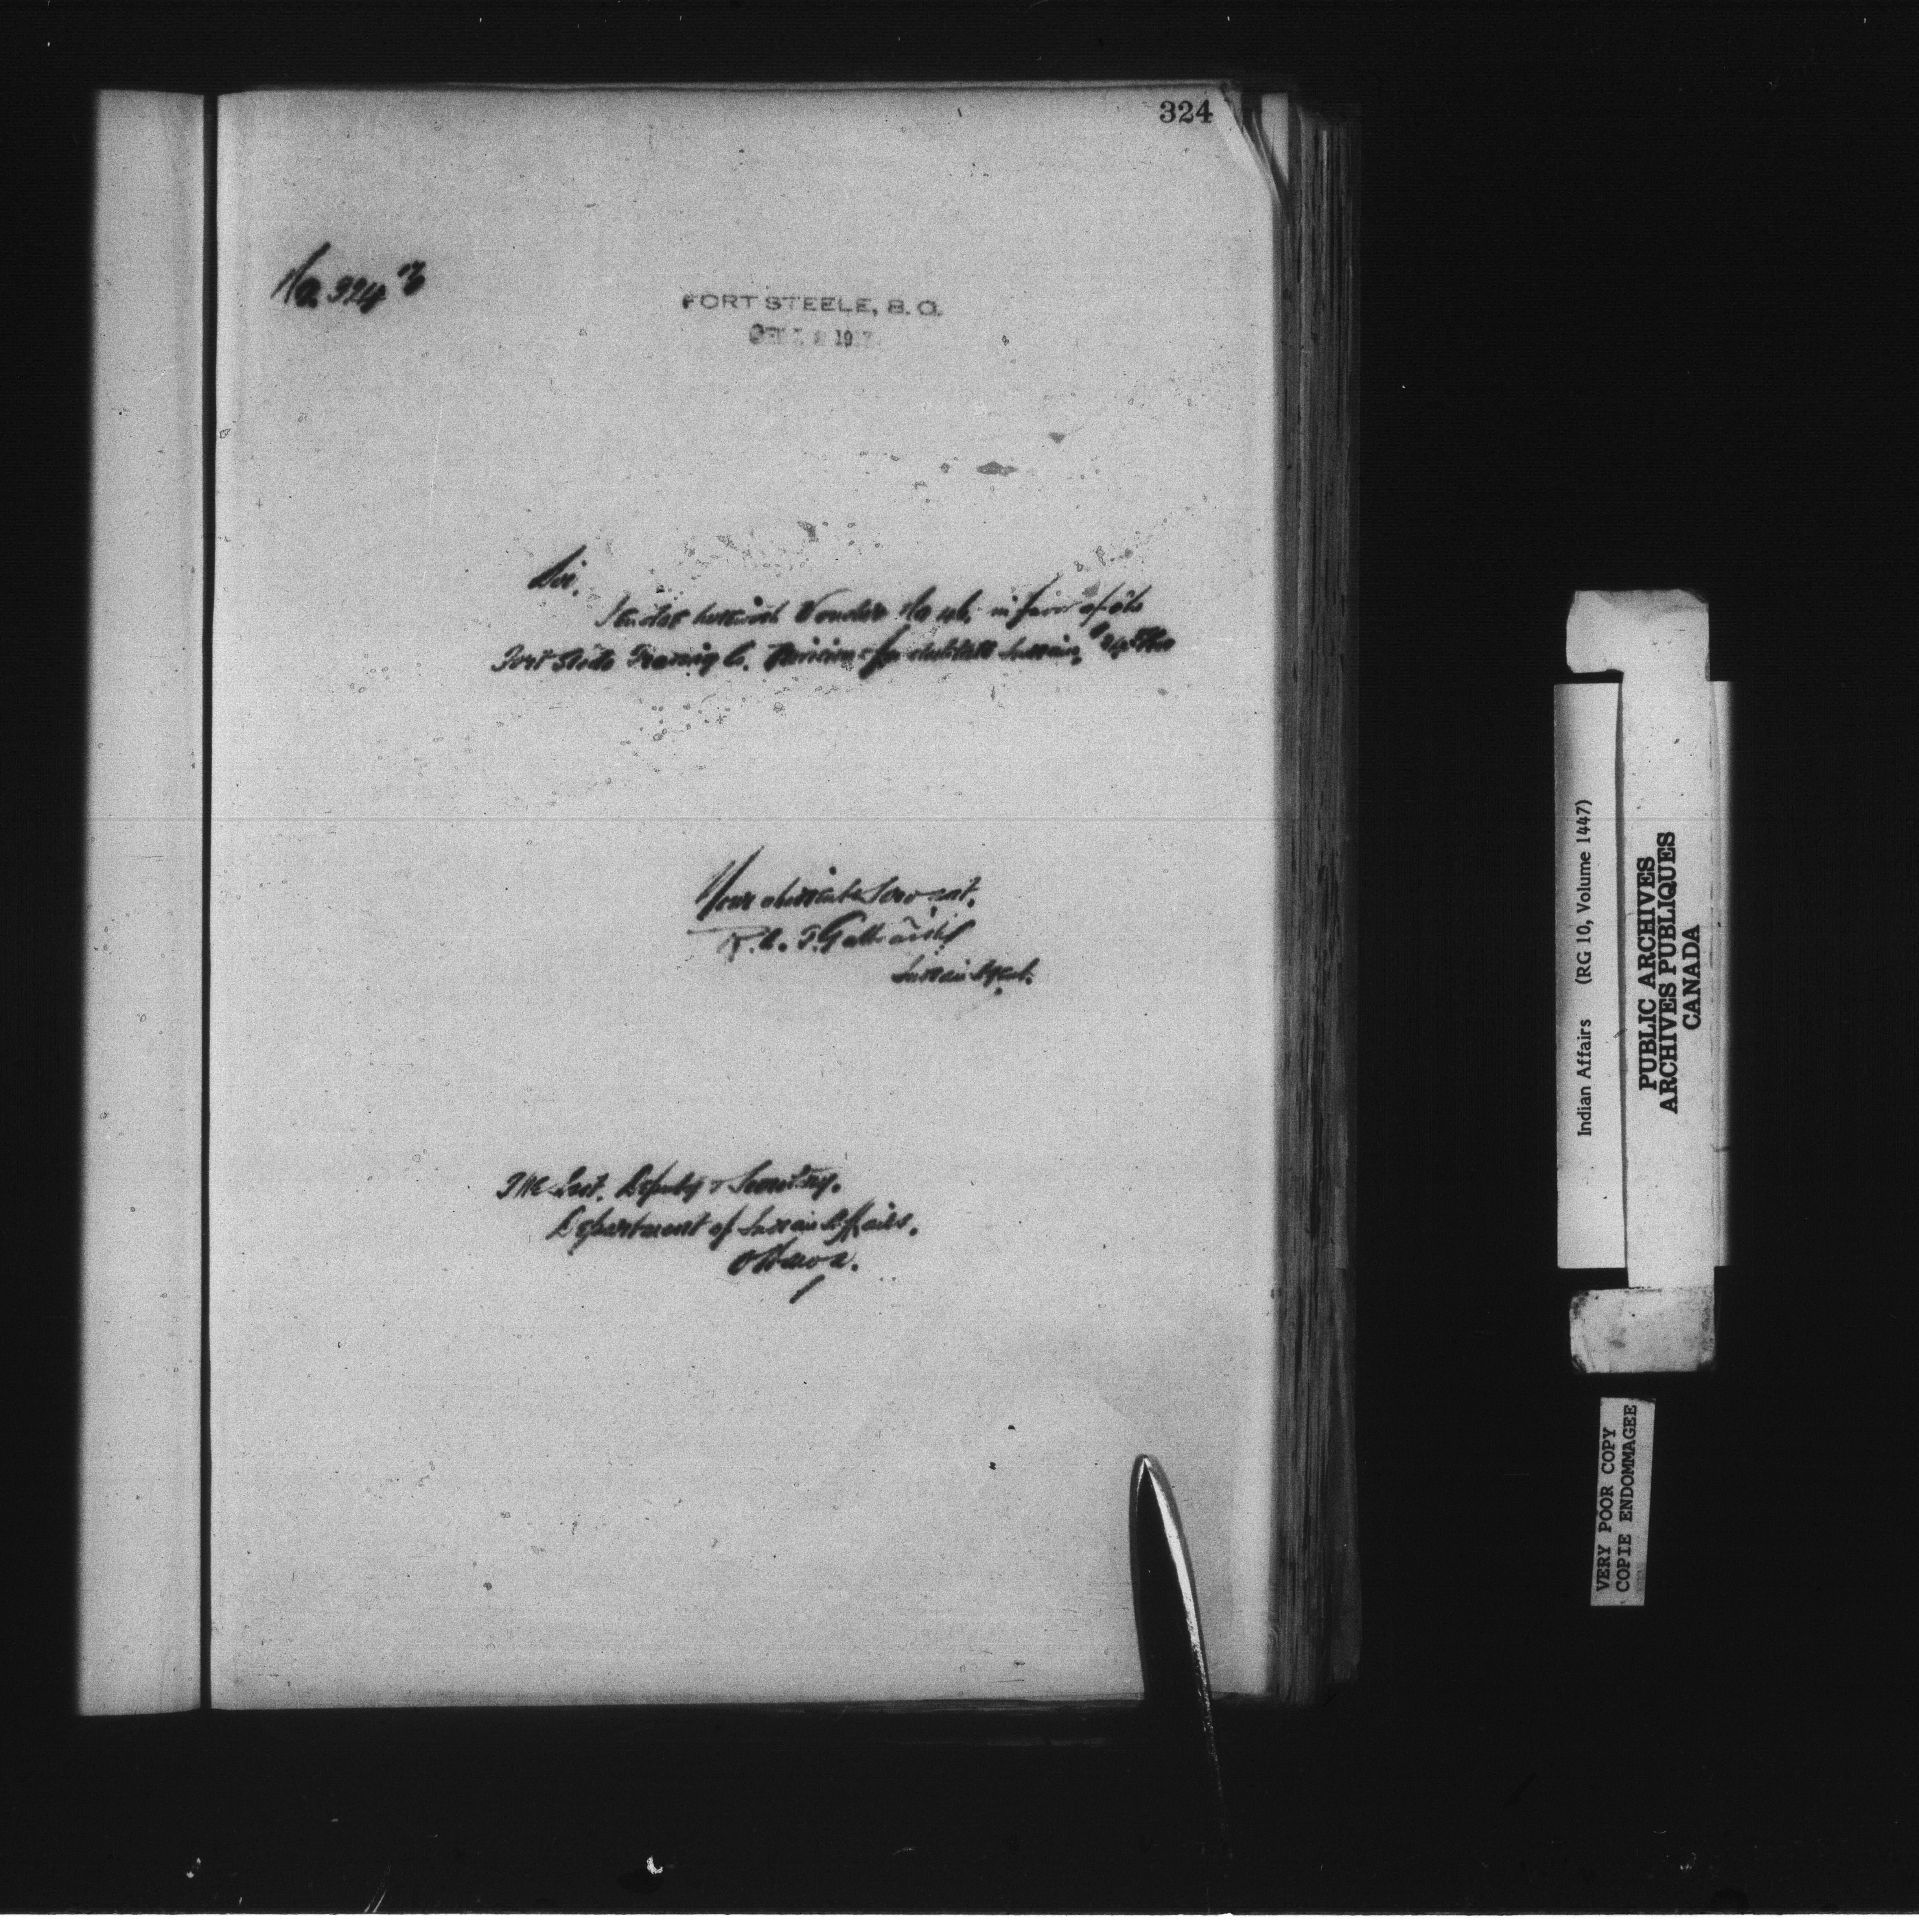 324
No. 324
FORT STEELE, B.C.
Sir,
I enclose herewith Voucher No 46, in favor of the
Fort Steele Trading Co. for destitute Indians,
Your obedient Servant,
R. L. T. Galbraith
Indian Agent.
The Asst. Deputy & Secretary,
Department of Indian Affairs,
Ottawa.
Indian Affairs (RG 10, Volume 1447)
PUBLIC ARCHIVES
ARCHIVES PUBLIQUES
CANADA
VERY POOR COPY
COPIE ENDOMMAGEE